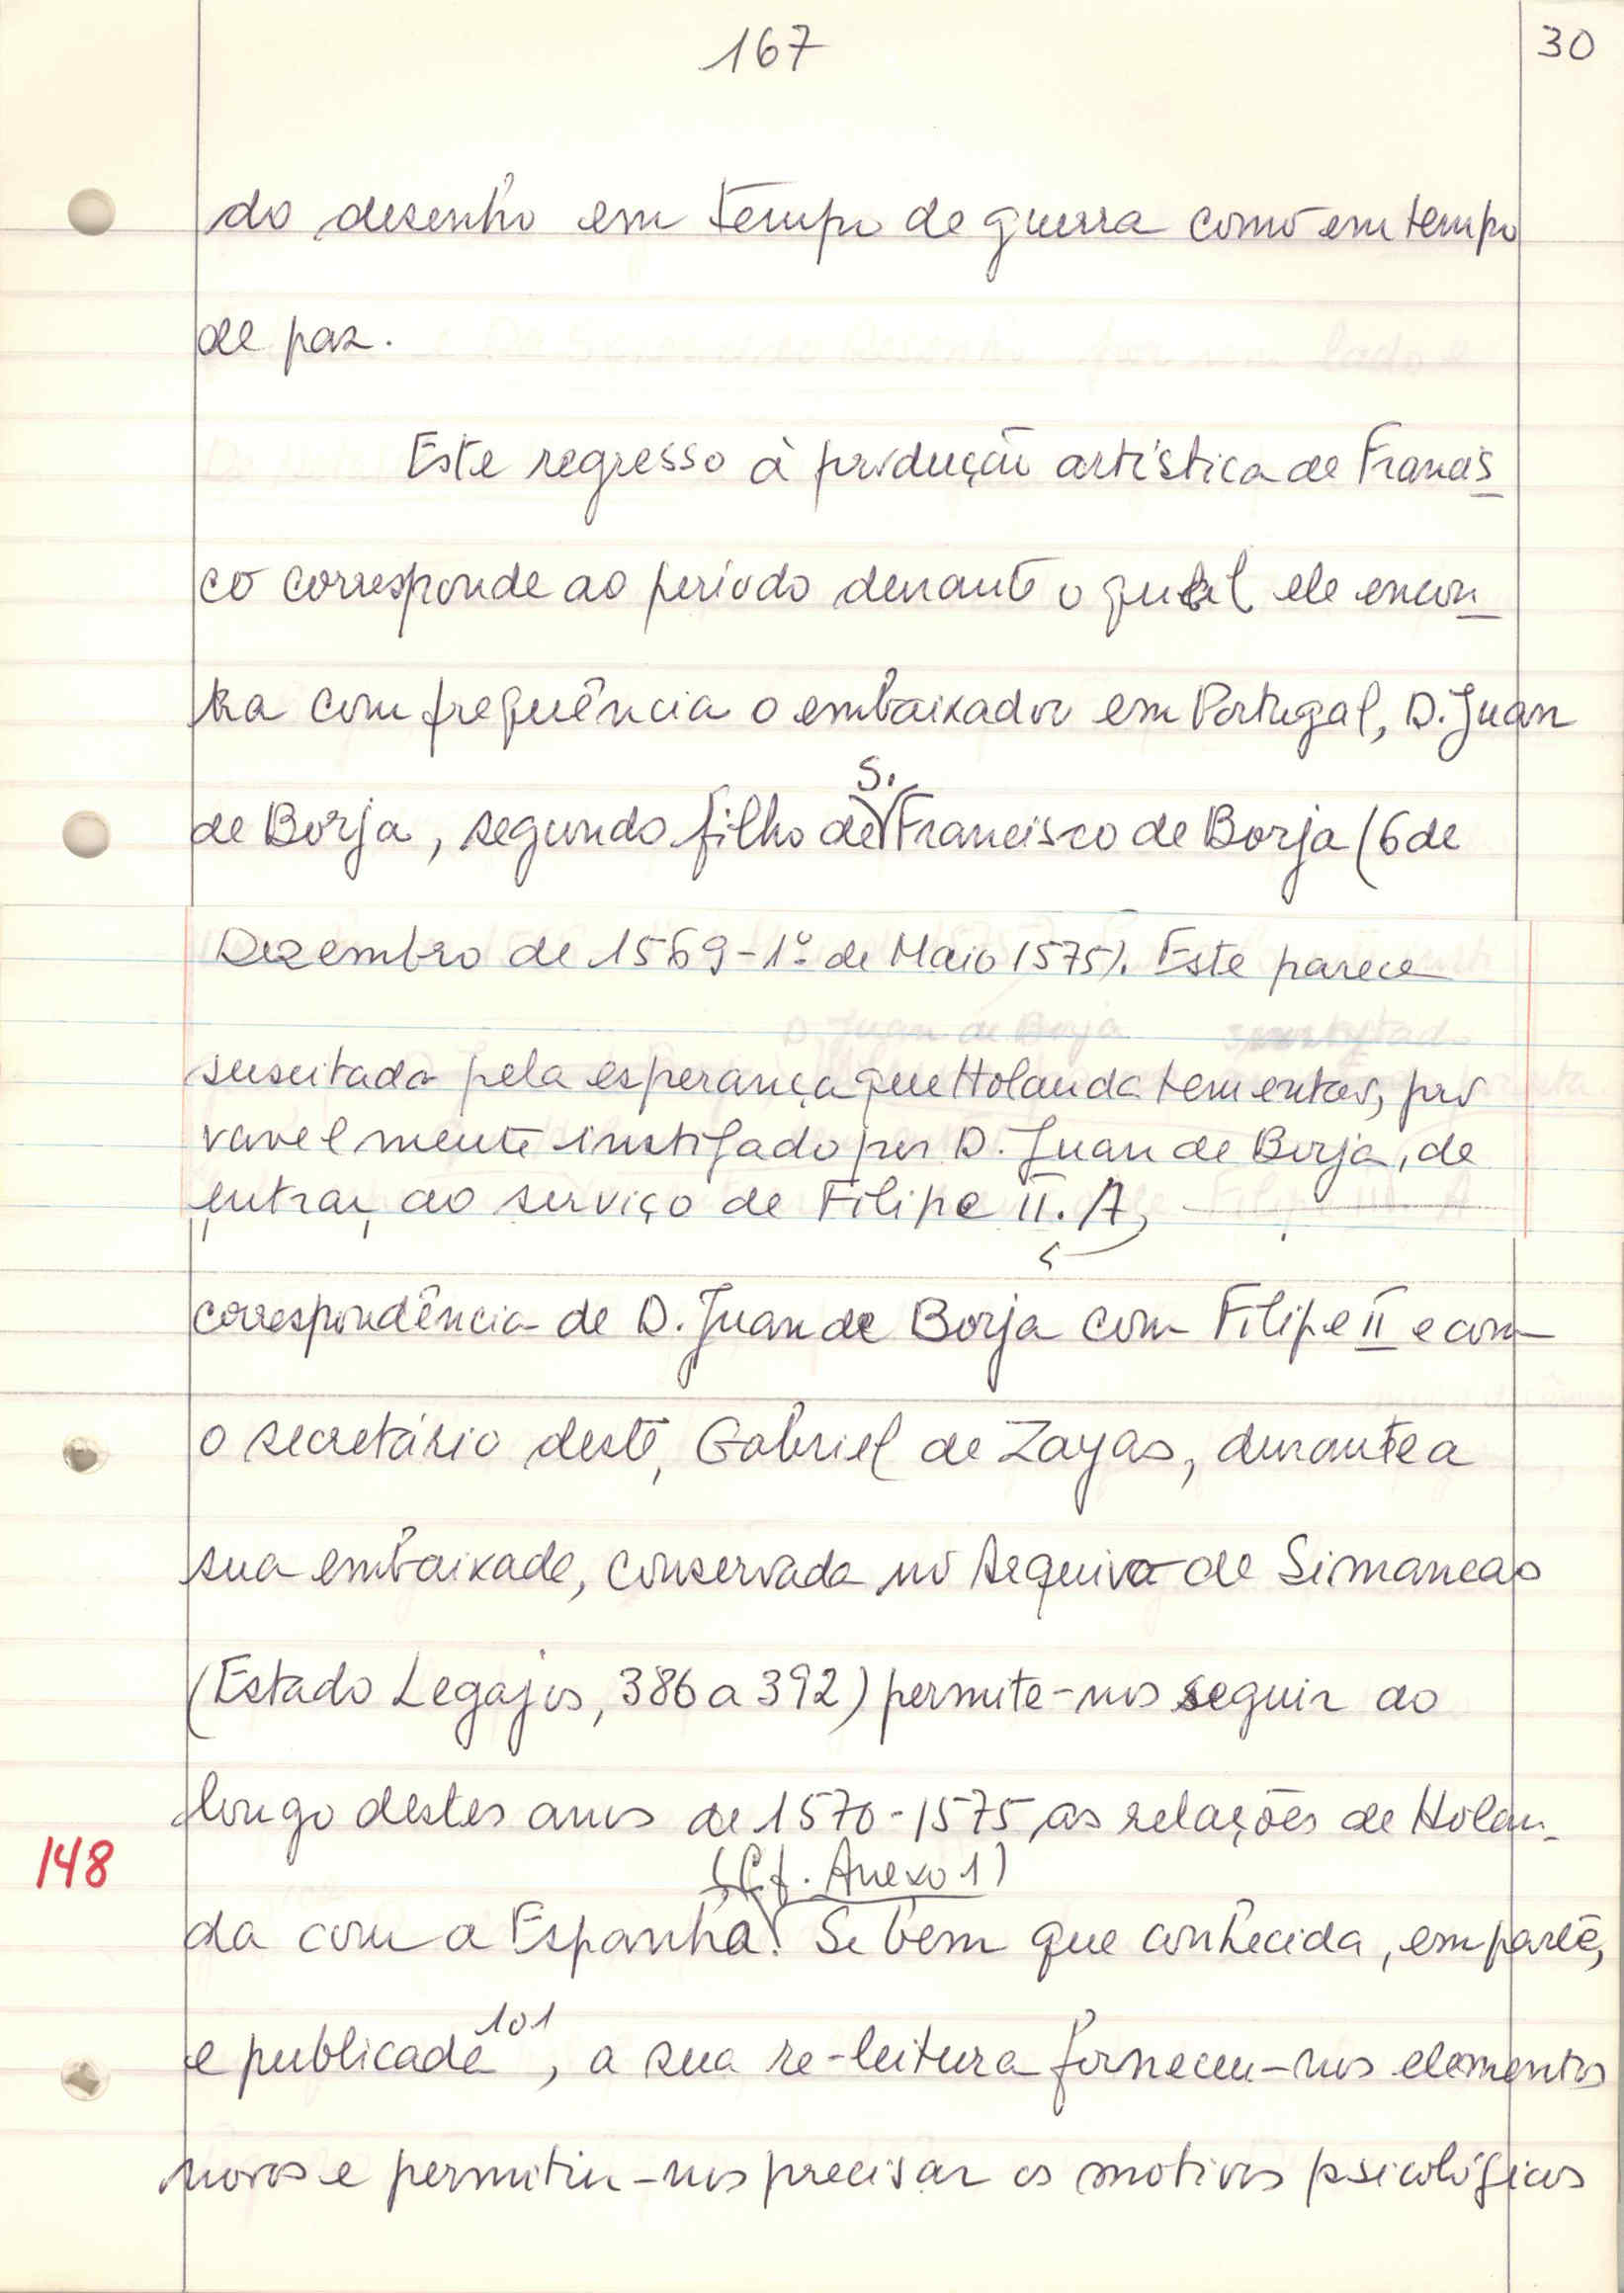 167
30
do desenho em tempo de guerra como em tempo
de paz.
Este regresso à produção artística de Francis
co corresponde ao período durante o qual ele encon
tra com frequência o embaixador em Portugal, D. Juan
S.
de Borja, segundo filho de Francisco de Borja (6 de
Dezembro de 1569-1º de Maio 1575). Este parece
suscitado pela esperança que Holanda tem então, pro
vavelmente instigado por D. Juan de Borja, de
entrar ao serviço de Filipe II. A
correspondência de D. Juan de Borja com Filipe II e com
o secretário deste, Gabriel de Zayas, durante a
sua embaixada, conservada no Arquivo de Simancas
(Estado Legajos, 386 a 392) permite-nos seguir ao
longo destes anos de 1570-1575 as relações de Holan-
148
(Cf. Anexo 1)
da com a Espanha. Se bem que conhecida, em parte,
e publicada 101, a sua re-leitura forneceu-nos elementos
novos e permitiu-nos precisar os motivos psicológicos